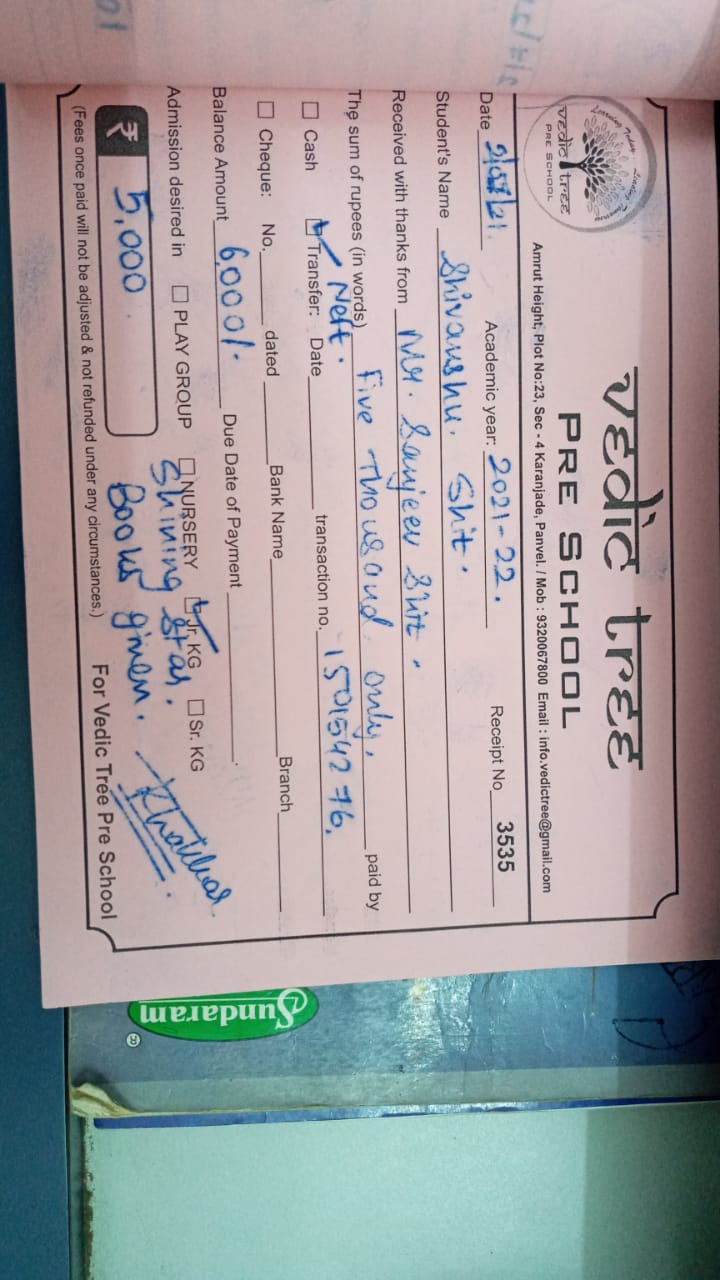 Learning Today... Leading Tomorrow
vedic tree
PRE SCHOOL
vedic tree
PRE SCHOOL
Amrut Height, Plot No:23, Sec - 4 Karanjade, Panvel. / Mob : 9320067800 Email : info.vedictree@gmail.com
Date 2/07/21. Academic year: 2021-22. Receipt No 3535
Student's Name Shivanshu. Shit.
Received with thanks from Mr. Sanjeev Shit.
The sum of rupees (in words) Five Thousand only. paid by
Neft.
☐ Cash ☑ Transfer: Date transaction no. 150154276.
☐ Cheque: No. dated Bank Name Branch
Balance Amount 6,000/. Due Date of Payment
Admission desired in ☐ PLAY GROUP ☐ NURSERY ☑ Jr. KG ☐ Sr. KG
Shining Star.
₹ 5,000 Books given.
(Fees once paid will not be adjusted & not refunded under any circumstances.) For Vedic Tree Pre School
Sundaram